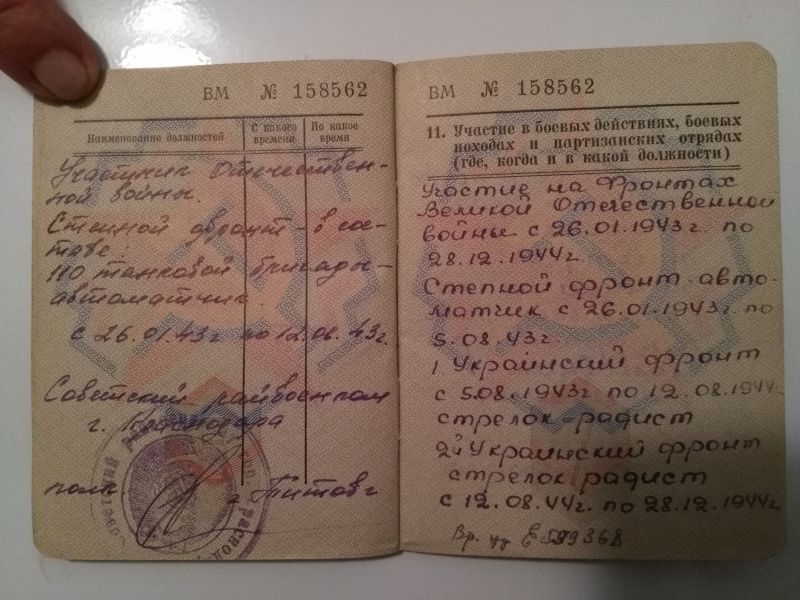 ВМ № 158562
Наименование должностей
С какого времени
По какое время
Участник Отечествен-
ной войны.
Степной фронт - в сос-
таве
110 танковой бригады -
автоматчик.
с 26.01.43г по 12.06.43г.
Советский райвоенком
г. Краснодара
Титов
ВМ № 158562
11. Участие в боевых действиях, боевых
походах и партизанских отрядах
(где, когда и в какой должности)
Участие на Фронтах
Великой Отечественной
войны с 26.01.1943г. по
28.12.1944г.
Степной фронт авто-
матчик с 26.01.1943г. по
5.08.43г.
1 Украинский фронт
с 5.08.1943г по 12.08.1944г
стрелок-радист
2й Украинский фронт
стрелок радист
с 12.08.44г. по 28.12.1944г.
Вр. уд Е 599368